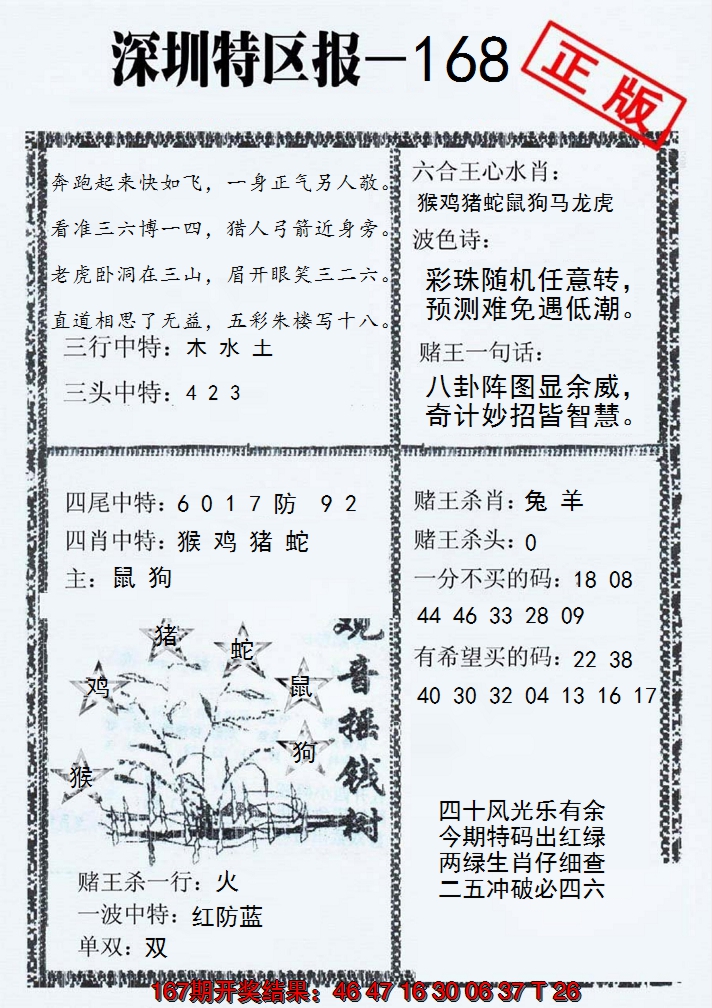 深圳特区报—168
正版
奔跑起来快如飞，一身正气另人敬。
看准三六博一四，猎人弓箭近身旁。
老虎卧洞在三山，眉开眼笑三二六。
直道相思了无益，五彩朱楼写十八。
三行中特：木 水 土
三头中特：4 2 3
六合王心水肖：
猴鸡猪蛇鼠狗马龙虎
波色诗：
彩珠随机任意转，
预测难免遇低潮。
赌王一句话：
八卦阵图显余威，
奇计妙招皆智慧。
四尾中特：6 0 1 7 防 9 2
四肖中特：猴 鸡 猪 蛇
主：鼠 狗
猪
蛇
鸡
鼠
狗
猴
观音摇钱树
赌王杀一行：火
一波中特：红防蓝
单双：双
赌王杀肖：兔 羊
赌王杀头：0
一分不买的码：18 08
44 46 33 28 09
有希望买的码：22 38
40 30 32 04 13 16 17
四十风光乐有余
今期特码出红绿
两绿生肖仔细查
二五冲破必四六
167期开奖结果：46 47 16 30 06 37 T 26